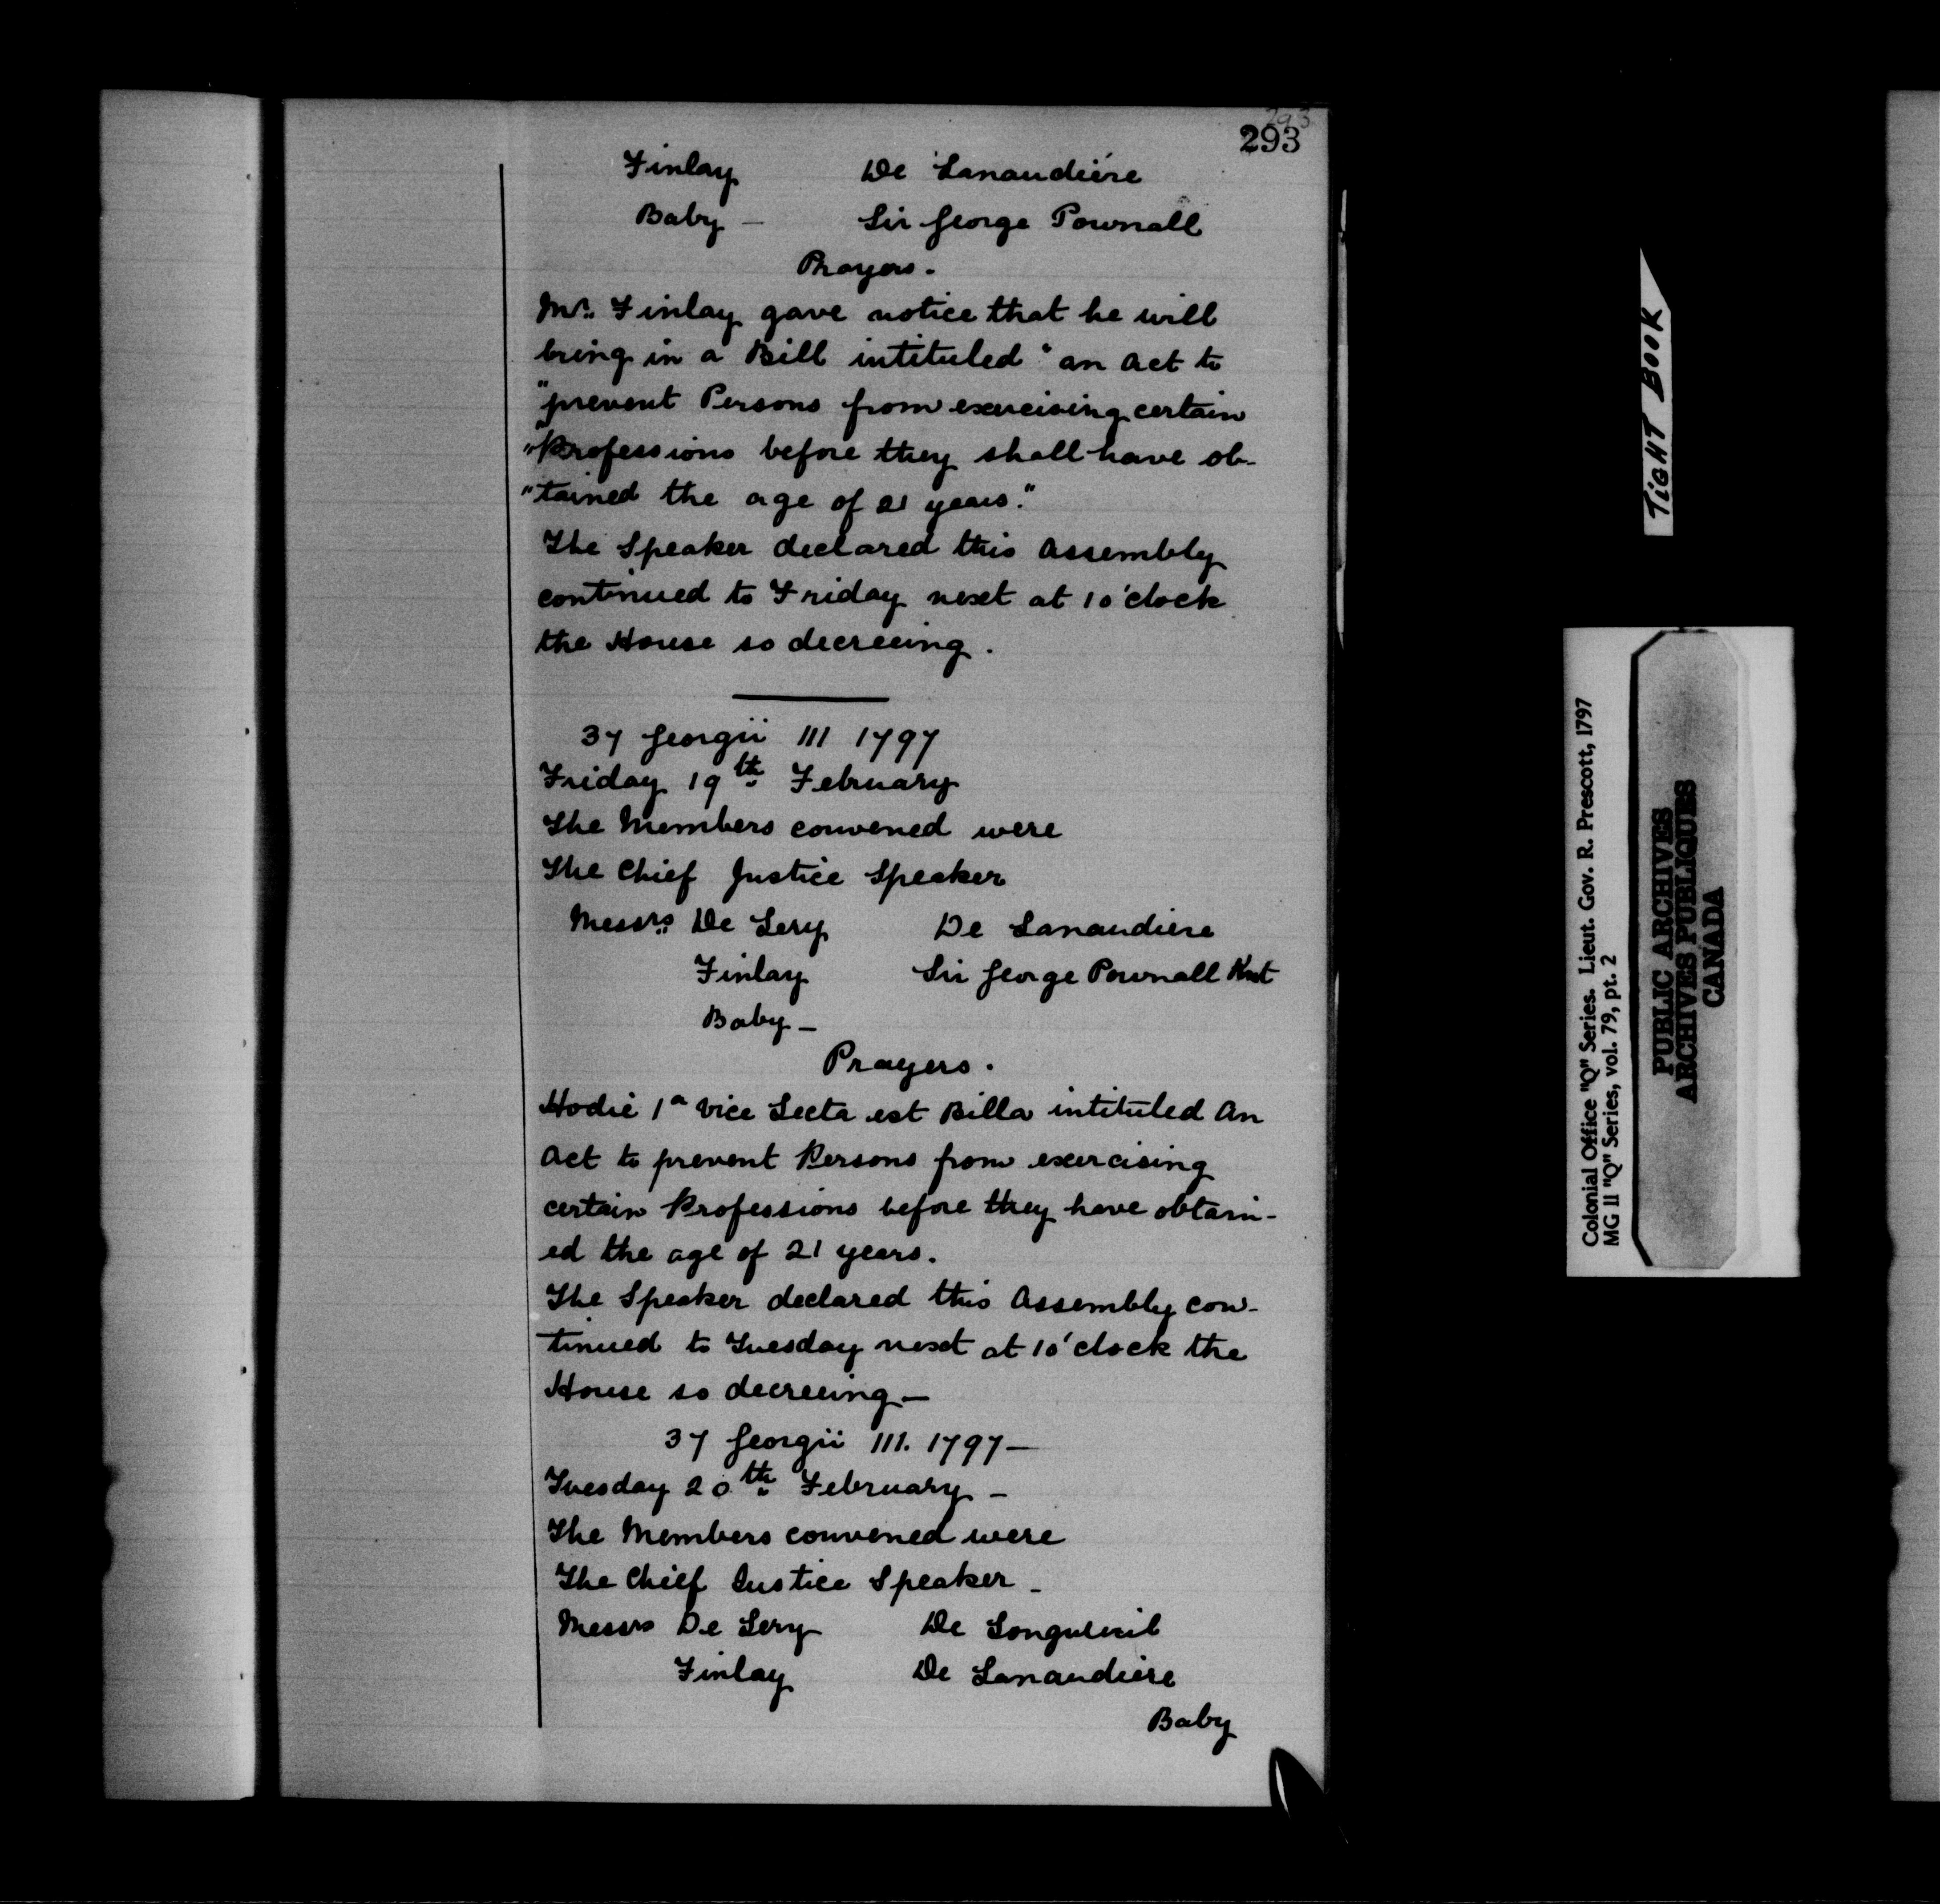 293
293
Finlay De Lanaudière
Baby — Sir George Pownall
Prayers.
Mr. Finlay gave notice that he will
bring in a Bill intituled "an Act to
"prevent Persons from exercising certain
"Professions before they shall have ob-
"tained the age of 21 years."
The Speaker declared this Assembly
continued to Friday next at 10'clock
the House so decreeing.
37 Georgii III 1797
Friday 19th February
The Members convened were
The Chief Justice Speaker
Messrs. De Lery De Lanaudiere
Finlay Sir George Pownall Knt
Baby —
Prayers.
Hodie 1a vice Lecta est Billa intituled An
Act to prevent Persons from exercising
certain Professions before they have obtain-
ed the age of 21 years.
The Speaker declared this Assembly con-
tinued to Tuesday next at 10'clock the
House so decreeing —
37 Georgii III. 1797 —
Tuesday 20th February —
The Members convened were
The Chief Justice Speaker —
Messrs De Lery De Longueuil
Finlay De Lanaudiere
Baby
TIGHT BOOK
Colonial Office "Q" Series. Lieut. Gov. R. Prescott, 1797
MG 11 "Q" Series, vol. 79, pt. 2
PUBLIC ARCHIVES
ARCHIVES PUBLIQUES
CANADA